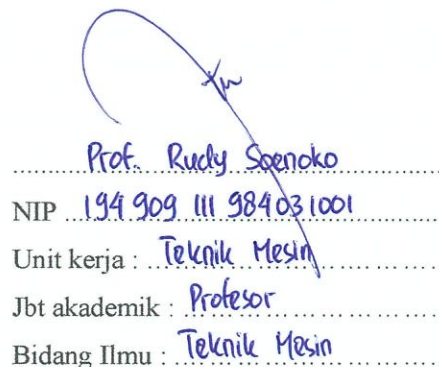 Prof. Rudy Soenoko
NIP 194 909 111 984031001
Unit kerja : Teknik Mesin
Jbt akademik : Profesor
Bidang Ilmu : Teknik Mesin